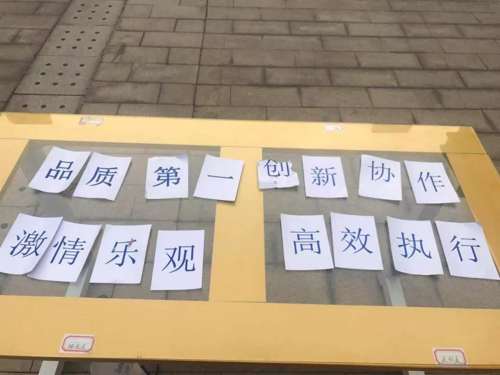 品质第一 创新协作
激情乐观 高效执行